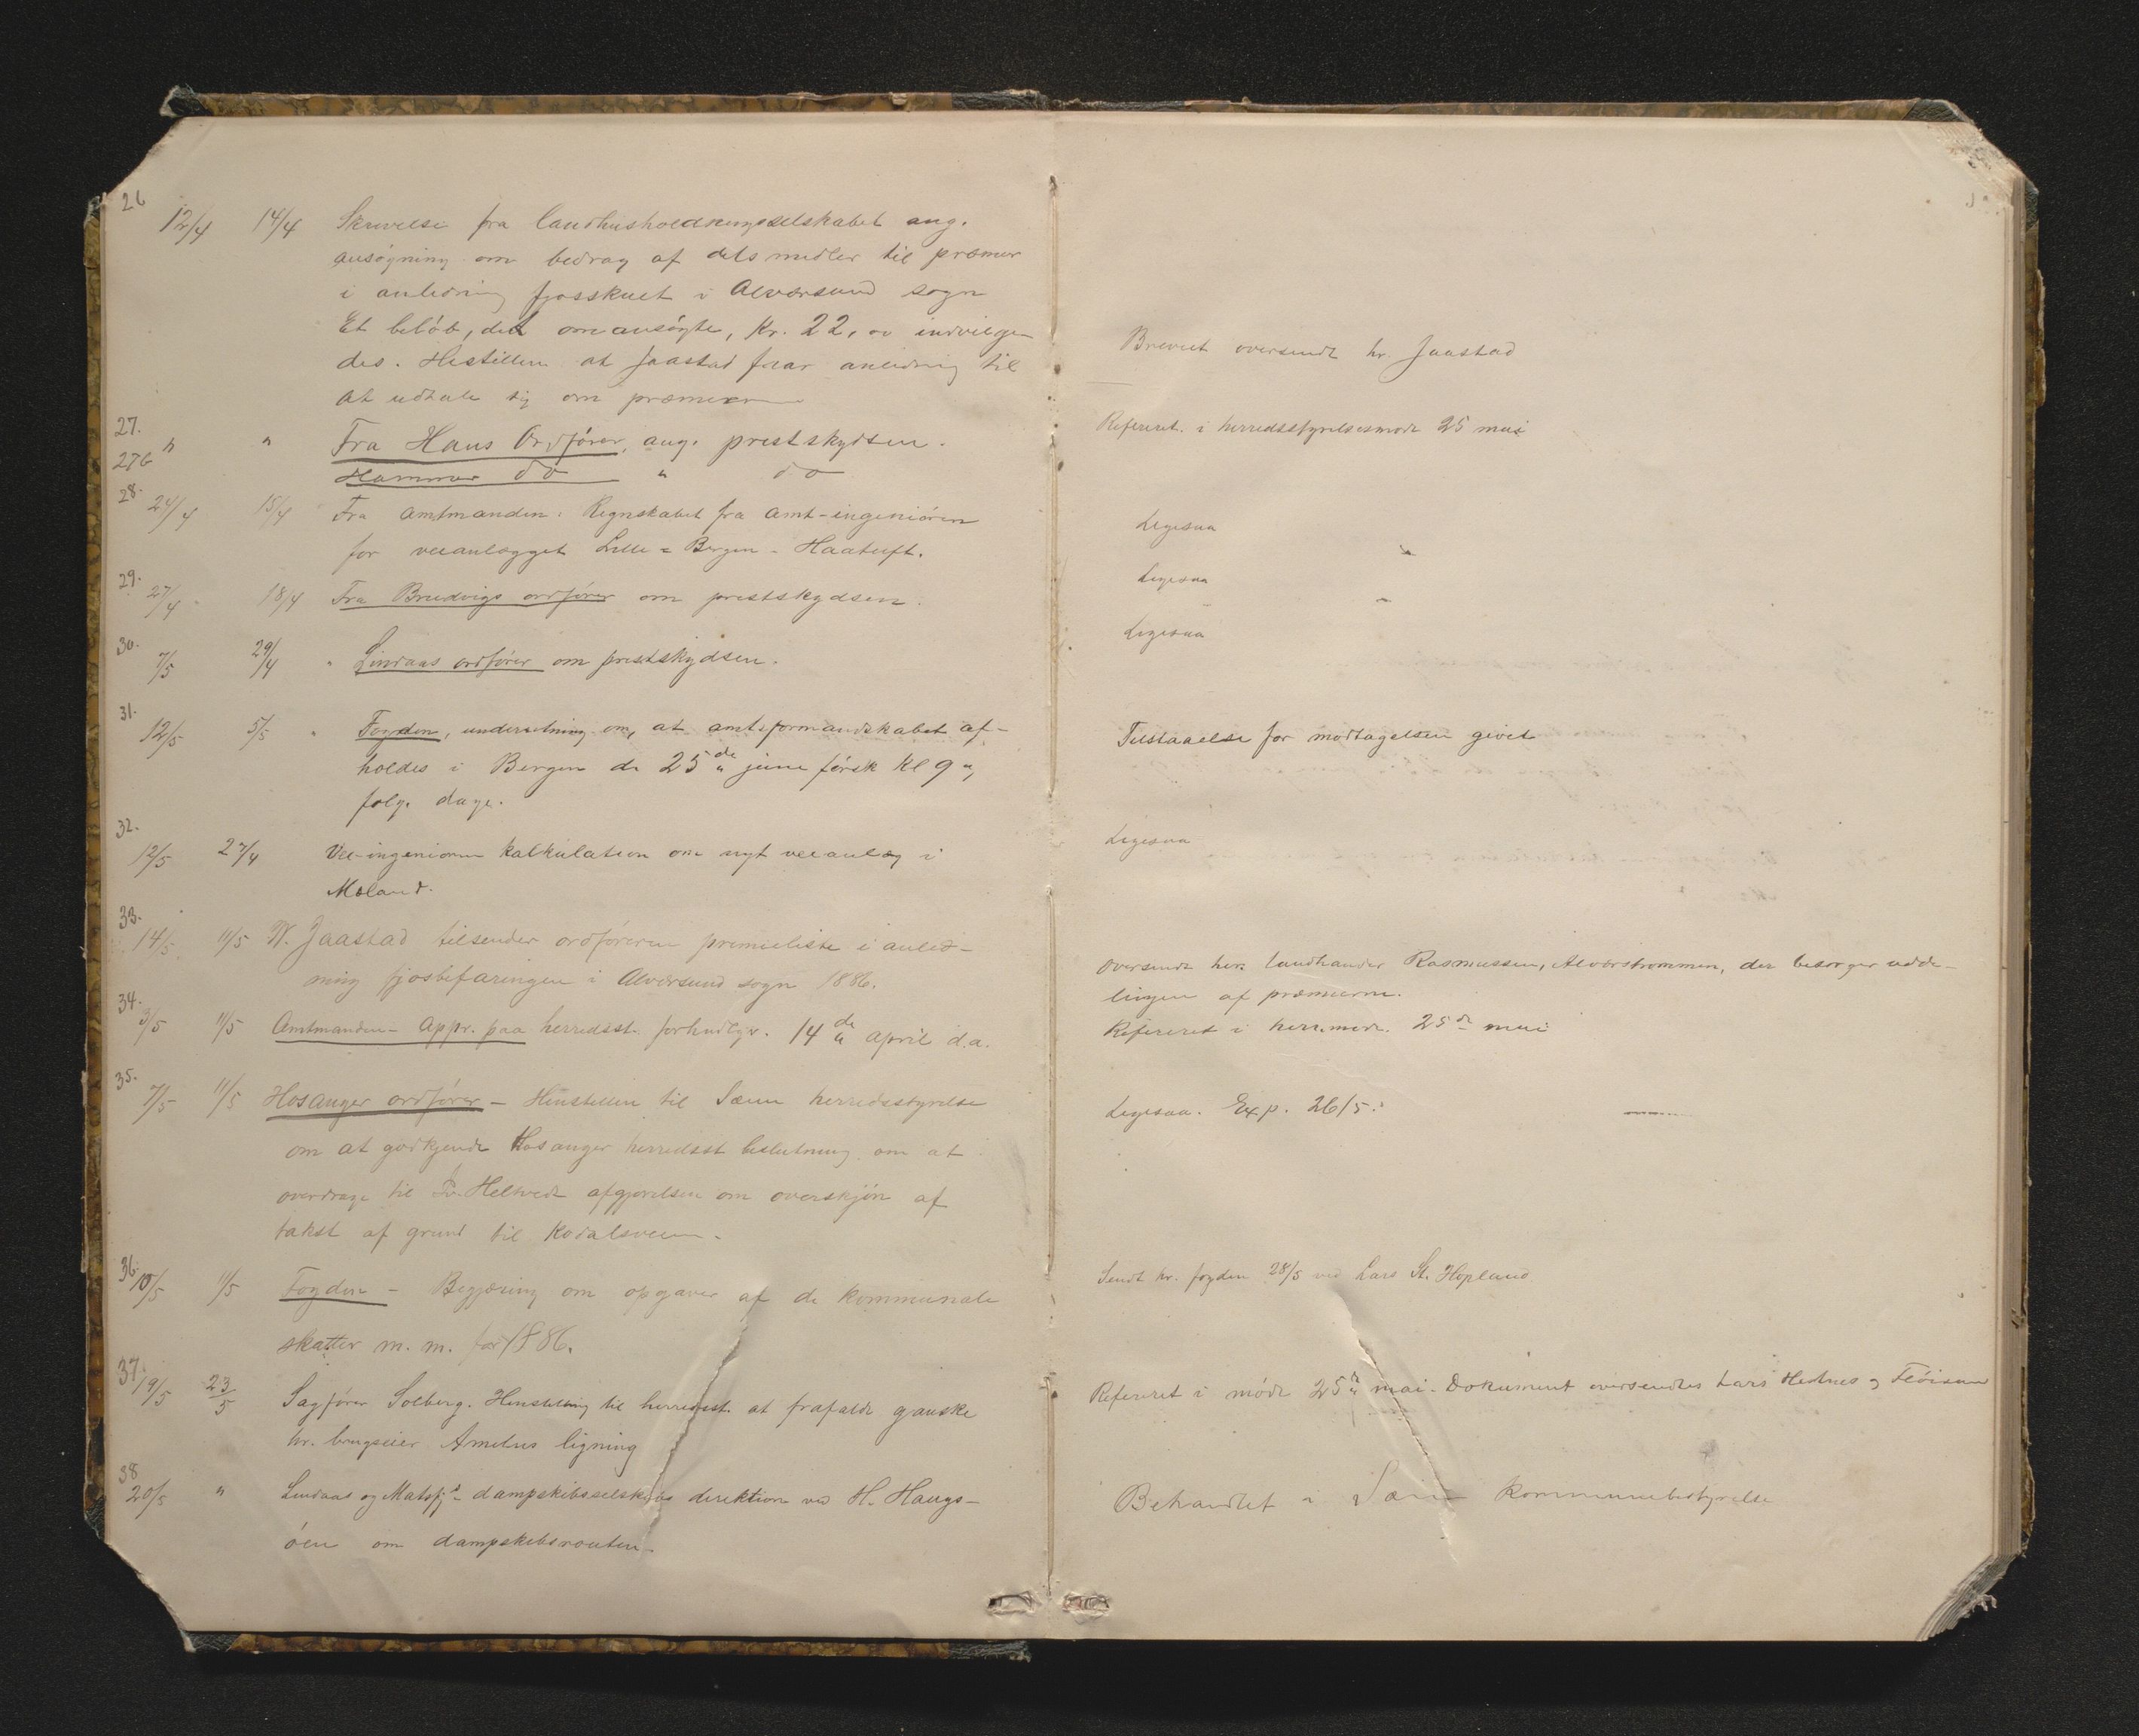 26
12/4 14/4 Skrivelse fra landhusholdningsselskabet ang.
ansøgning om bedrag af dets midler til præmier
i anledning fjosskuet i Alværsund sogn
Et beløb, det omansøgte, kr. 22,00 indvilge-
des. Henstillen at Jaastad faar anledning til
at udtale sig om præmierne
Brevet oversendt hr. Jaastad
27. " " Fra Haus Ordfører, ang. prestskydsen.
Refereret i herredsstyrelsesmøde 25 mai
27b Hammer do " do
28. 24/4 15/4 Fra amtmanden: Regnskabet fra amt-ingeniøren
for veianlægget Lille-Bergen-Haatuft.
Ligesaa "
29. 27/4 18/4 Fra Bruvigs ordfører om prestskydsen.
Ligesaa "
30. 7/5 29/4 " Lindaas ordfører om prestskydsen.
Ligesaa
31. 12/5 5/5 " Fogden, underretning om, at amtsformandskabet af-
holdes i Bergen de 25de juni førsk kl 9 og
følg. dage.
Tilstaaelse for modtagelsen givet
32. 12/5 27/4 Vei-ingeniøren kalkulation om nyt veianlæg i
Mæland.
Ligesaa
33. 14/5 11/5 W. Jaastad tilsender ordføreren premieliste i anled-
ning fjosbefaringen i Alværsund sogn 1886.
Oversendt herr landhandler Rasmussen, Alværstrømmen, der besørger udde-
lingen af præmierne.
34. 3/5 11/5 Amtmanden - Appr. paa herredsst. forhndlgr. 14de april d.a.
Refereret i herr.møde. 25de mai
35. 7/5 11/5 Hosanger ordfører - Henstillen til Sæim herredsstyrelse
om at godkjende Hosanger herredsst beslutning om at
overdrage til Helvedt afgjørelsen om overskjøn af
takst af grund til Kodalsveien.
Ligesaa. Exp. 26/5.
36. 10/5 11/5 Fogden - Begjæring om opgaver af de kommunale
skatter m. m. for 1886.
Sendt hr. fogden 28/5 ved Lars St. Hopland
37. 19/5 23/5 Sagfører Solberg. Henstilling til herredsst. at frafalde ganske
hr. brugseier Amelns ligning
Refereret i møde 25de mai. Dokument oversendtes Lars Hestnes og
38 20/5 " Lindaas og Matsfjd - dampskibsselskabs direktion ved H. Haugs-
øen om dampskibsrouten.
Behandlet i Sæim kommunebestyrelse